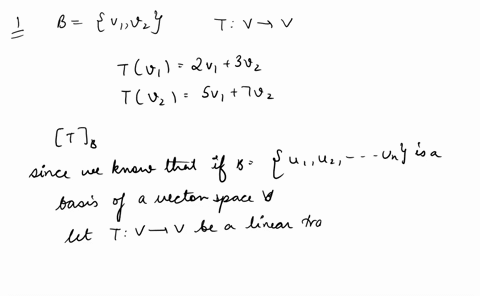 1 B = {v₁, v₂} T: V → V
T(v₁) = 2v₁ + 3v₂
T(v₂) = 5v₁ + 7v₂
[T]_B
since we know that if B = {u₁, u₂, --- uₙ} is a
basis of a vector space V
let T: V → V be a linear tra